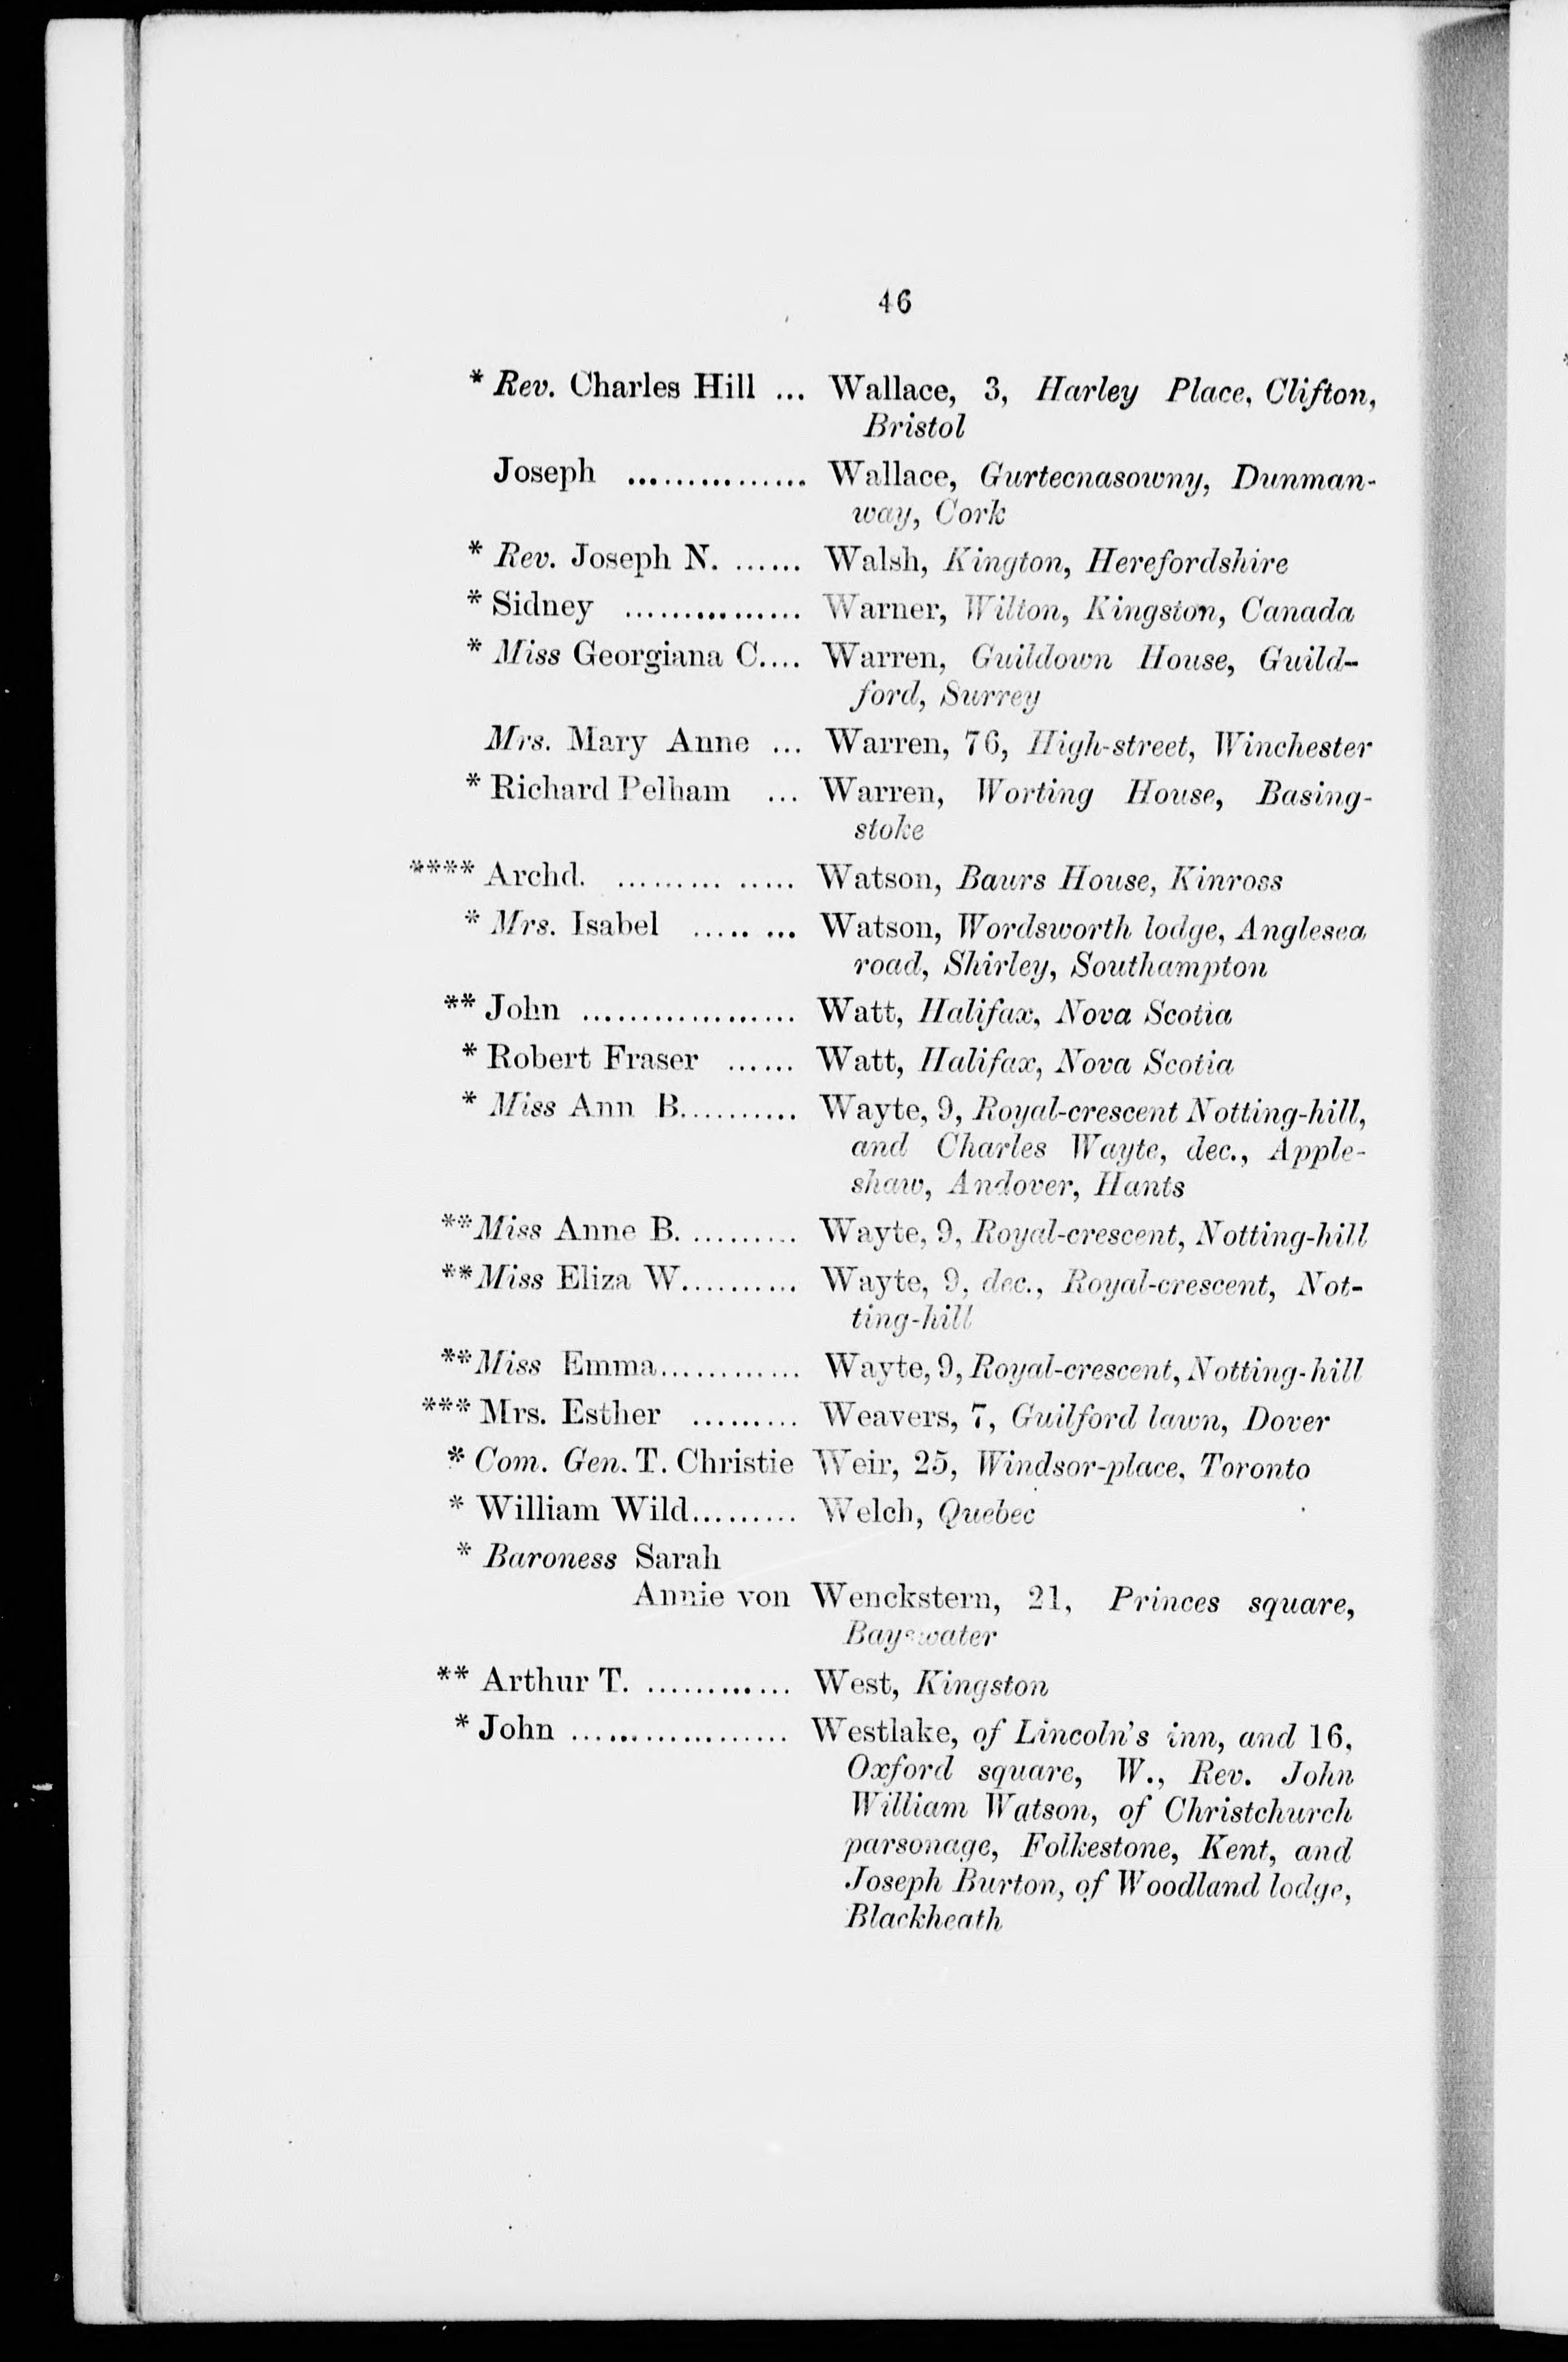 46
* Rev. Charles Hill ... Wallace, 3, Harley Place, Clifton,
Bristol
Joseph ............... Wallace, Gurtecnasowny, Dunman-
way, Cork
* Rev. Joseph N. ...... Walsh, Kington, Herefordshire
* Sidney ............... Warner, Wilton, Kingston, Canada
* Miss Georgiana C.... Warren, Guildown House, Guild-
ford, Surrey
Mrs. Mary Anne ... Warren, 76, High-street, Winchester
* Richard Pelham ... Warren, Worting House, Basing-
stoke
**** Archd. ............... Watson, Baurs House, Kinross
* Mrs. Isabel ........ Watson, Wordsworth lodge, Anglesea
road, Shirley, Southampton
** John .................. Watt, Halifax, Nova Scotia
* Robert Fraser ...... Watt, Halifax, Nova Scotia
* Miss Ann B.......... Wayte, 9, Royal-crescent Notting-hill,
and Charles Wayte, dec., Apple-
shaw, Andover, Hants
** Miss Anne B. ......... Wayte, 9, Royal-crescent, Notting-hill
** Miss Eliza W.......... Wayte, 9, dec., Royal-crescent, Not-
ting-hill
** Miss Emma............ Wayte, 9, Royal-crescent, Notting-hill
*** Mrs. Esther ......... Weavers, 7, Guilford lawn, Dover
* Com. Gen. T. Christie Weir, 25, Windsor-place, Toronto
* William Wild......... Welch, Quebec
* Baroness Sarah
Annie von Wenckstern, 21, Princes square,
Bayswater
** Arthur T. ............ West, Kingston
* John ................... Westlake, of Lincoln's inn, and 16,
Oxford square, W., Rev. John
William Watson, of Christchurch
parsonage, Folkestone, Kent, and
Joseph Burton, of Woodland lodge,
Blackheath